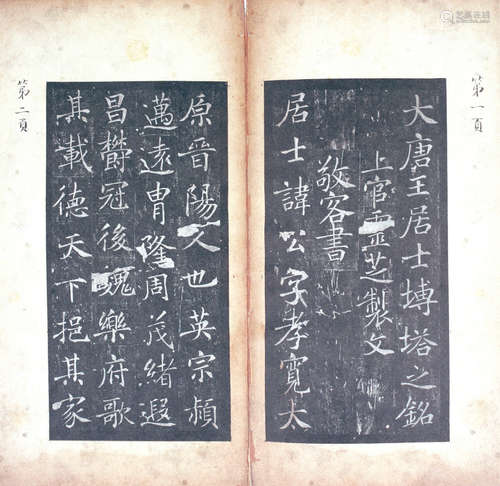 艺狐在线
第一頁
大唐王居士塼塔之銘
上官靈芝製文
敬客書
居士諱公字孝寬太
原晉陽人也英宗穎
邁遠胄隆周茂緒遐
昌欝冠後魏樂府歌
其載德天下挹其家
第二頁